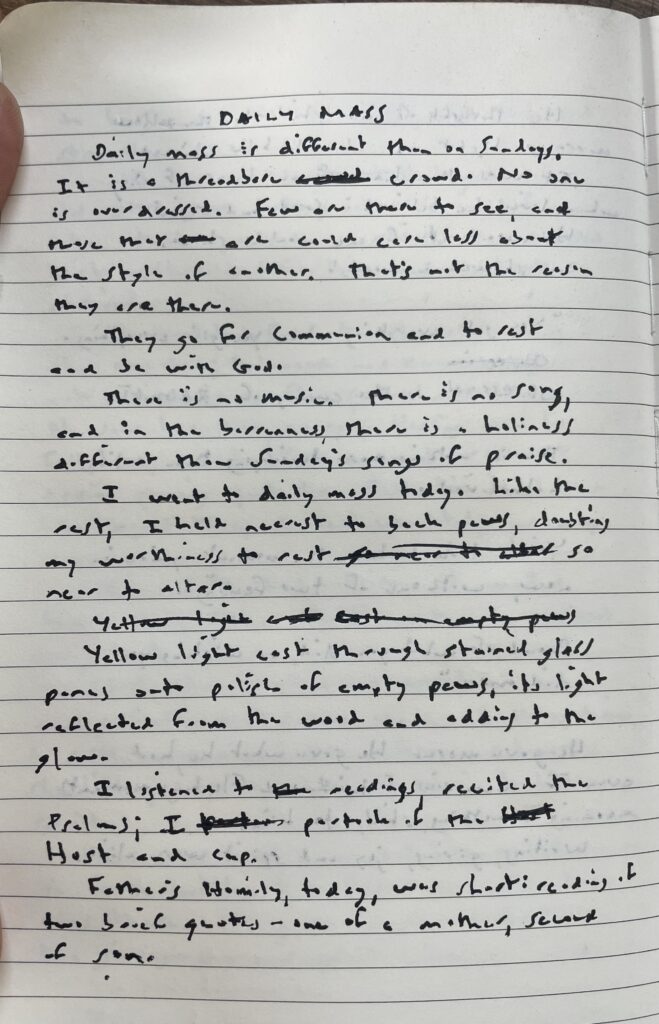 DAILY MASS
Daily mass is different than on Sundays.
It is a threadbare crowd. No one
is overdressed. Few are there to see, and
those that are could care less about
the style of another. That's not the reason
they are there.
They go for Communion and to rest
and be with God.
There is no music. There is no song,
and in the barrenness there is a holiness
different than Sunday's songs of praise.
I went to daily mass today. Like the
rest, I held nearest to back pews, doubting
my worthiness to rest so near to altar so
near to altar.
Yellow light cast on empty pews
Yellow light cast through stained glass
panes onto polish of empty pews, its light
reflected from the wood and adding to the
glow.
I listened to the readings, recited the
Psalms; I partook of the Host
Host and cup.
Father's Homily, today, was short: reading of
two brief quotes - one of a mother, second
of son.